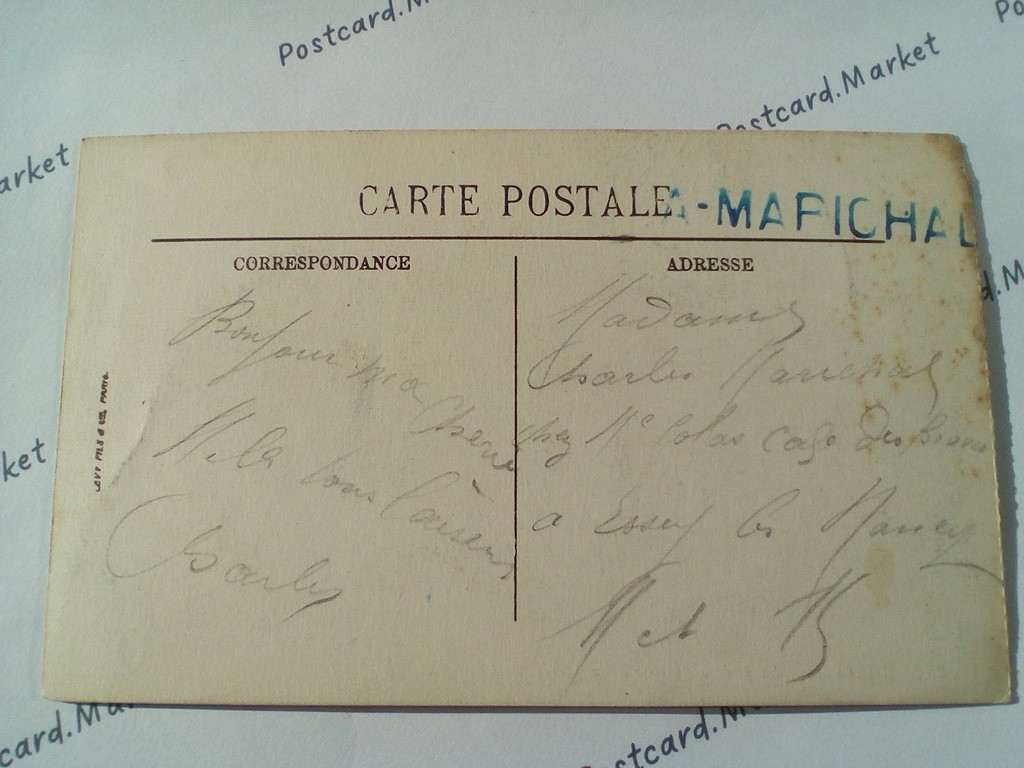 Postcard.M
Po
Postcard.Market
arket
CARTE POSTALE
A-MARICHAL
CORRESPONDANCE
ADRESSE
Bonjour ma Cherie
Mela bons baisers
Charles
Madame
Charles Marichal
chez Mr Colas Cafe des
a Essey les Nancy
M et M
LEVY FILS & CIE PARIS.
d.M
ket
card.Mar
stcard.M